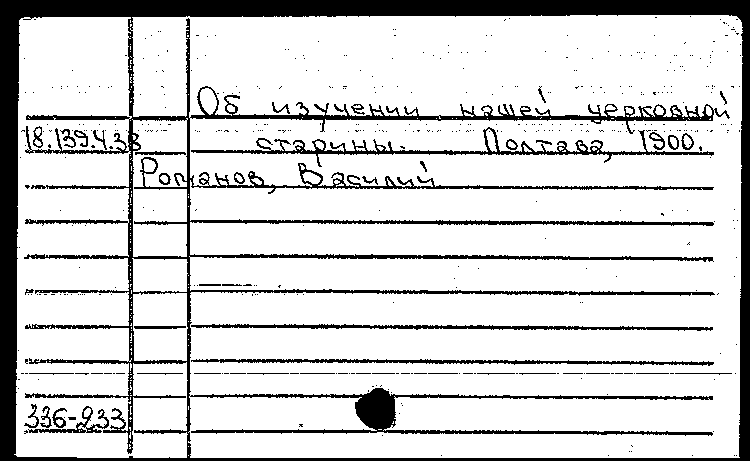 Об изучении нашей церковной
18.139.4.38 старины. Полтава, 1900.
Романов, Василий
336-233